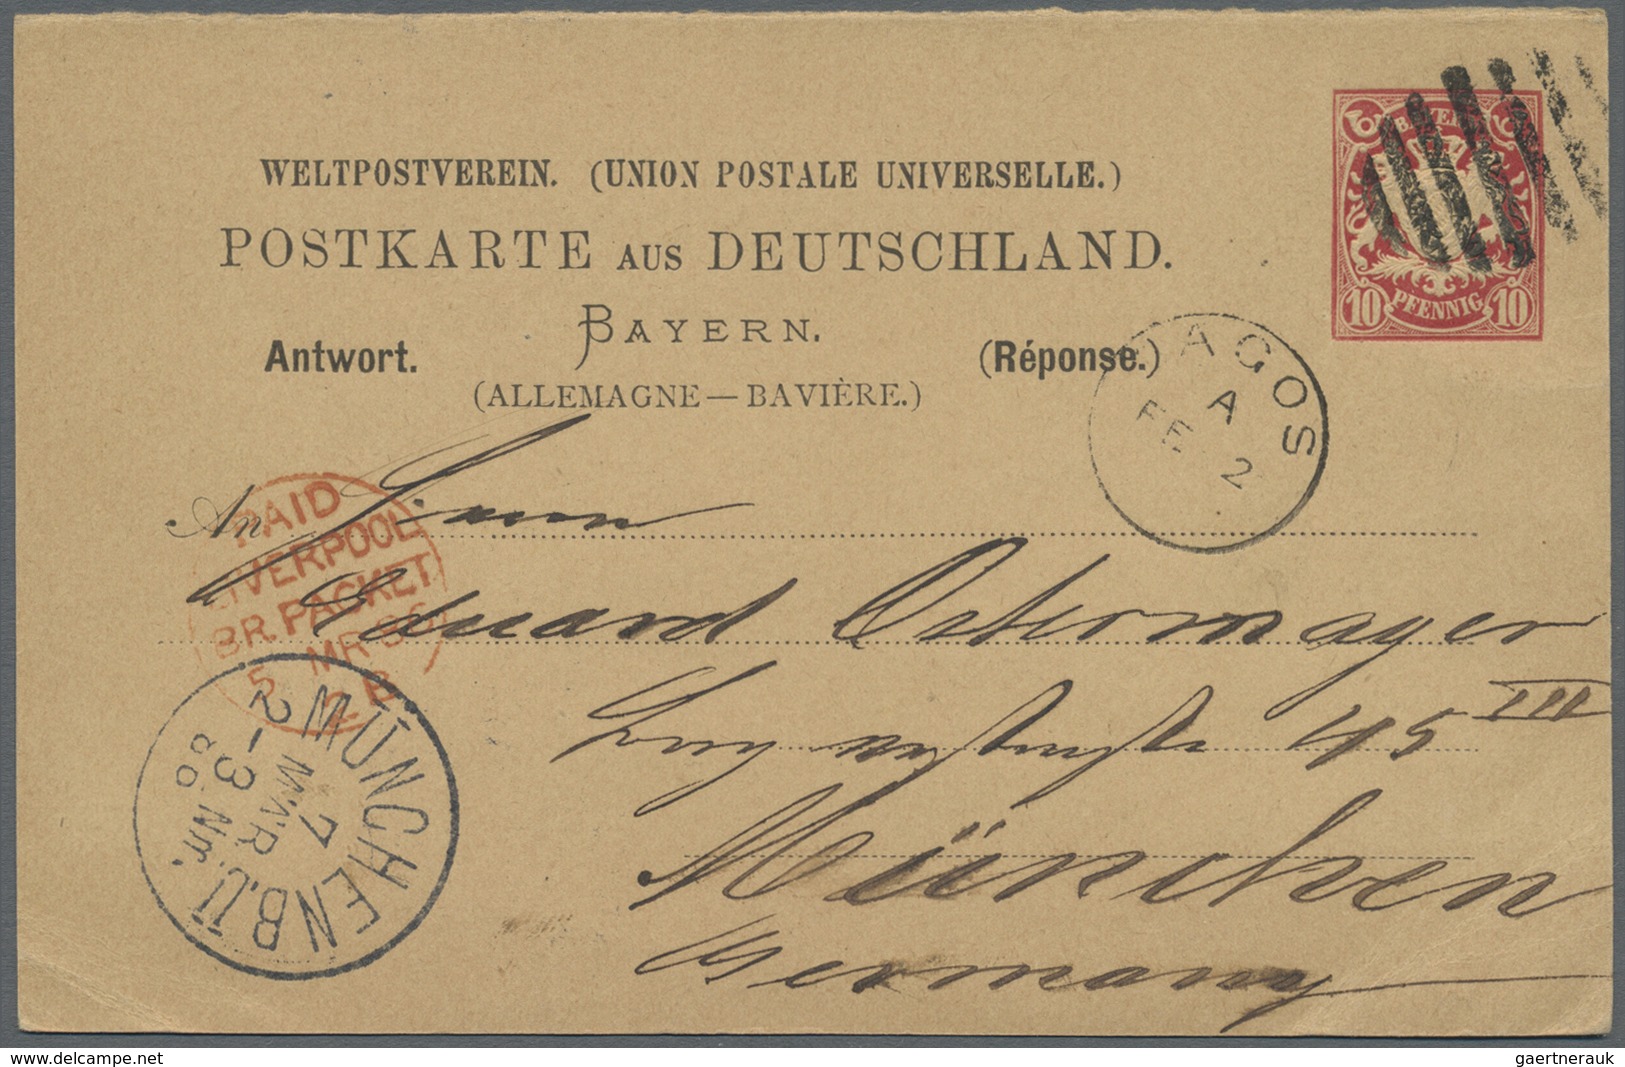 WELTPOSTVEREIN. (UNION POSTALE UNIVERSELLE.)
POSTKARTE AUS DEUTSCHLAND.
BAYERN.
Antwort. (Réponse.)
(ALLEMAGNE — BAVIÈRE.)
BAYERN
10 PFENNIG 10
LAGOS
A
FE 2
PAID
LIVERPOOL
BR. PACKET
5 MR 86
2 B
An Herrn
Eduard Ostermayer
45 III
München
Germany
MÜNCHEN B.II
7
MAR
2-3 Nm.
86
delcampe.net
gaertnerauk